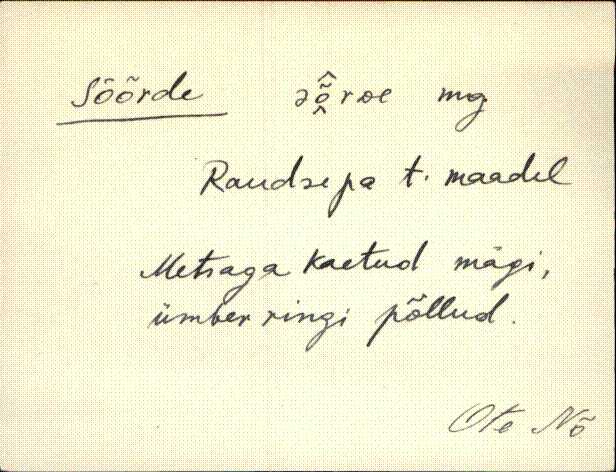 Sõõrde mg
Raudsepa t. maadel
Metsaga kaetud mägi,
ümber ringi põllud.
Ote Nõ